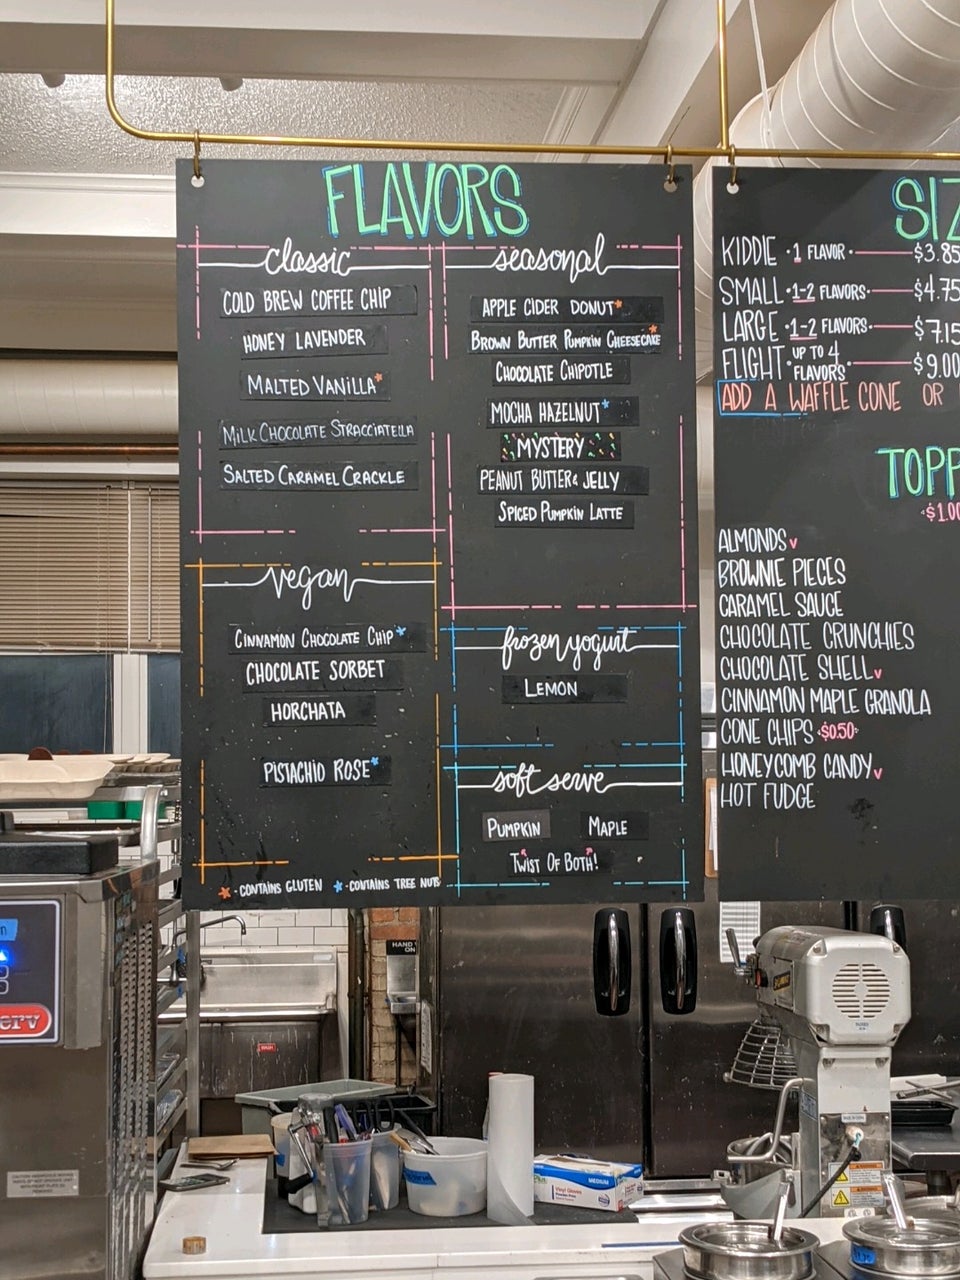 FLAVORS
classic
COLD BREW COFFEE CHIP
HONEY LAVENDER
MALTED VANILLA*
MILK CHOCOLATE STRACCIATELLA
SALTED CARAMEL CRACKLE
seasonal
APPLE CIDER DONUT*
BROWN BUTTER PUMPKIN CHEESECAKE*
CHOCOLATE CHIPOTLE
MOCHA HAZELNUT*
MYSTERY
PEANUT BUTTER & JELLY
SPICED PUMPKIN LATTE
vegan
CINNAMON CHOCOLATE CHIP*
CHOCOLATE SORBET
HORCHATA
PISTACHIO ROSE*
frozen yogurt
LEMON
soft serve
PUMPKIN MAPLE
TWIST OF BOTH!
*-CONTAINS GLUTEN *-CONTAINS TREE NUTS
SIZ
KIDDIE · 1 FLAVOR · $3.85
SMALL · 1-2 FLAVORS $4.75
LARGE · 1-2 FLAVORS $7.15
FLIGHT · UP TO 4 FLAVORS $9.00
ADD A WAFFLE CONE OR
TOPP
·$1.00
ALMONDS v
BROWNIE PIECES
CARAMEL SAUCE
CHOCOLATE CRUNCHIES
CHOCOLATE SHELL v
CINNAMON MAPLE GRANOLA
CONE CHIPS ·$0.50·
HONEYCOMB CANDY v
HOT FUDGE
HAND
ON
erv
MEDIUM
Vinyl Gloves